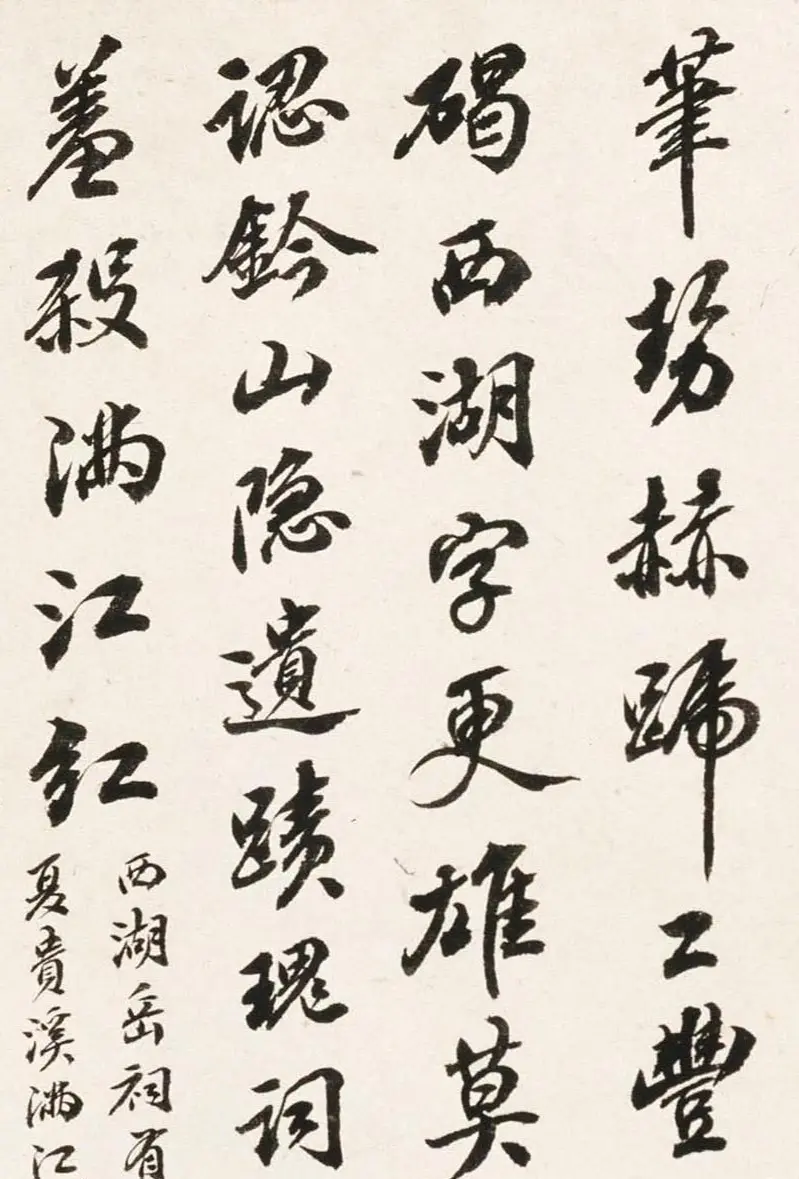 筆勢赫蹏工豐
碣西湖字更雄莫
認鈐山隐遺蹟瑰詞
羞殺滿江紅
西湖岳祠有
夏貴溪滿江